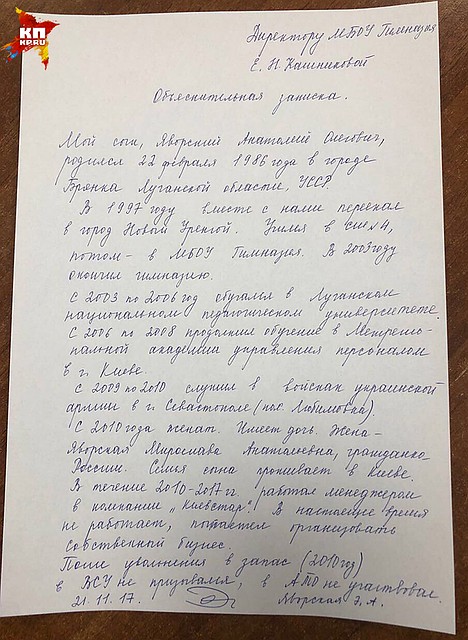 КП
KP.RU
Директору МБОУ Гимназия
Е. Н Кашниковой
Объяснительная записка.
Мой сын, Яворский Анатолий Олегович,
родился 22 февраля 1986 года в городе
Брянка Луганской области, УССР.
В 1997 году вместе с нами переехал
в город Новый Уренгой. Учился в СШ №4,
потом - в МБОУ Гимназия. В 2003 году
окончил гимназию.
С 2003 по 2006 год обучался в Луганском
национальном педагогическом университете.
С 2006 по 2008 продолжил обучение в Межрегио-
нальной академии управления персоналом
в г. Киеве.
С 2009 по 2010 служил в войсках украинской
армии в г. Севастополе (пос. Любимовка).
С 2010 года женат. Имеет дочь. Жена -
Яворская Мирослава Анатольевна, гражданка
России. Семья сына проживает в Киеве.
В течение 2010-2017 гг работал менеджером
в компании "Киевстар". В настоящее время
не работает, пытается организовать
собственный бизнес.
После увольнения в запас (2010 год)
в ВСУ не призывался, в АТО не участвовал.
21.11.17. Яворская Э.А.